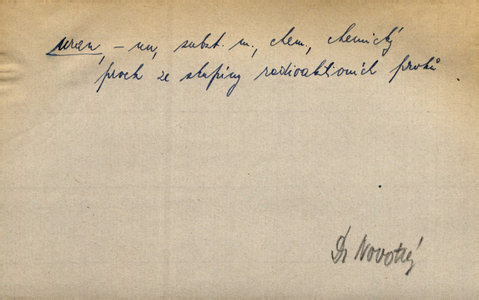 uran, -nu, subst. m., chem., chemický
prvek ze skupiny radioaktivních prvků
Dr Novotný